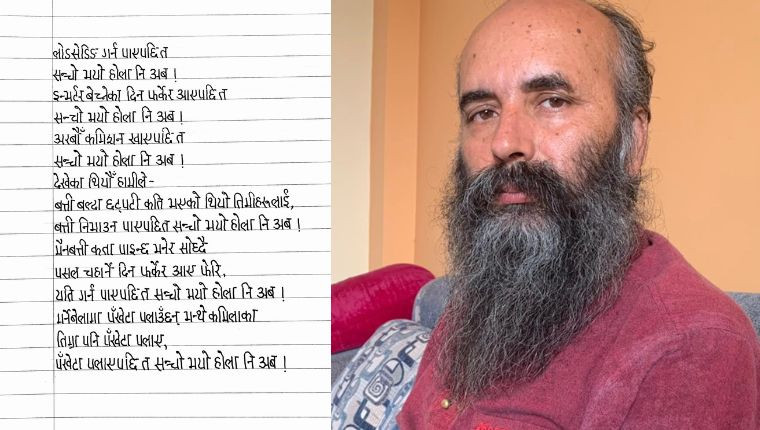 लोडसेडिङ गर्न पाएपछि त
सन्चो भयो होला नि अब !
इन्भर्टर बेच्नेका दिन फर्केर आएपछि त
सन्चो भयो होला नि अब !
अरबौँ कमिशन खाएपछि त
सन्चो भयो होला नि अब !
देखेका थियौँ हामीले -
बत्ती बल्दा छट्पटी कति भएको थियो तिमीहरूलाई,
बत्ती निभाउन पाएपछि त सन्चो भयो होला नि अब !
मैनबत्ती कता पाइन्छ भनेर सोध्दै
पसल चहार्ने दिन फर्केर आए फेरि,
यति गर्न पाएपछि त सन्चो भयो होला नि अब !
मर्नेबेलामा पँखेटा पलाउँछन् भन्थे कमिलाका
तिम्रा पनि पँखेटा पलाए,
पँखेटा पलाएपछि त सन्चो भयो होला नि अब !